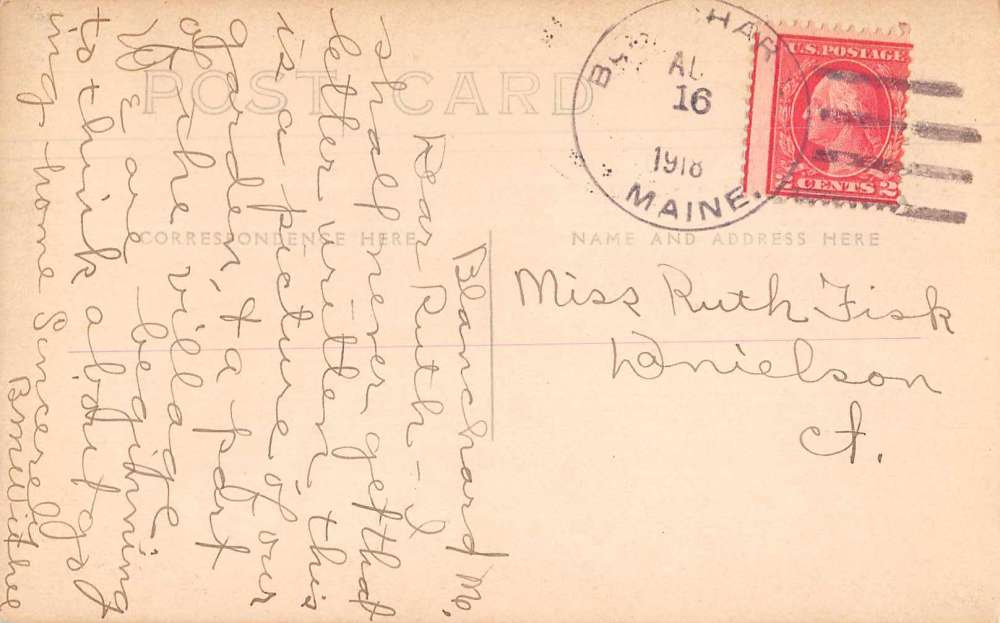 POST CARD
AU
16
1918
MAINE.
U.S. POSTAGE
2 CENTS 2
CORRESPONDENCE HERE
NAME AND ADDRESS HERE
Blanchard Me.
Dear Ruth - I
shall never get that
letter written, this
is a picture of our
garden & a part
of the village
We are beginning
to think about go
ing home Sincerely
Miss Ruth Fisk
Danielson
Ct.